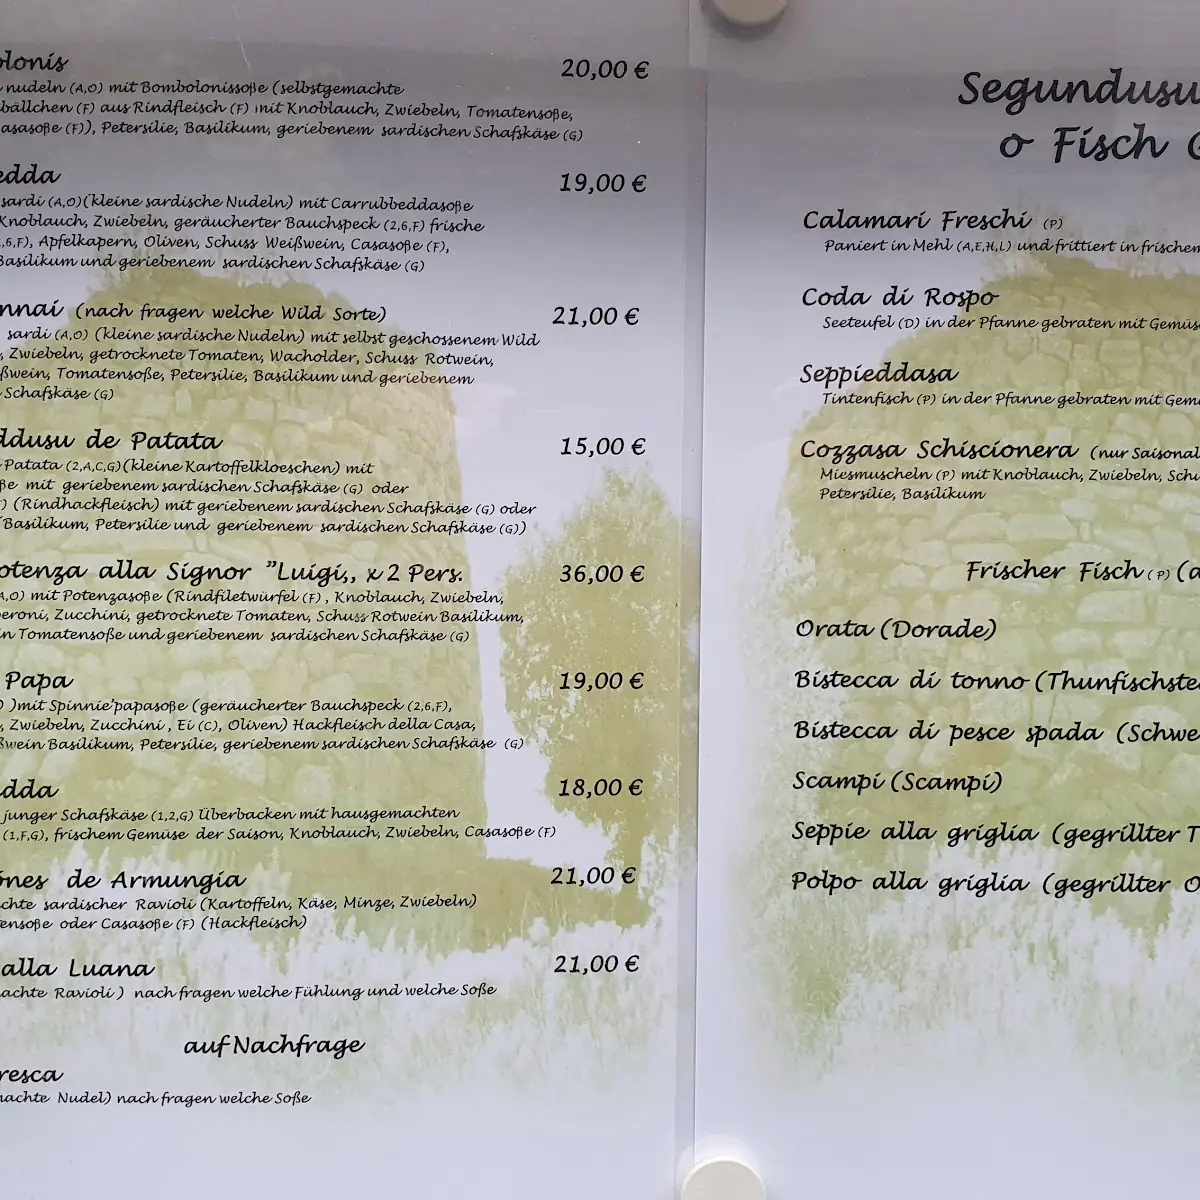 olonis 20,00 €
nudeln (A,O) mit Bombolonissoße (selbstgemachte
bällchen (F) aus Rindfleisch (F) mit Knoblauch, Zwiebeln, Tomatensoße,
asasoße (F)), Petersilie, Basilikum, geriebenem sardischen Schafskäse (G)
edda 19,00 €
sardi (A,O)(kleine sardische Nudeln) mit Carrubbeddasoße
Knoblauch, Zwiebeln, geräucherter Bauchspeck (2,6,F) frische
,6,F), Apfelkapern, Oliven, Schuss Weißwein, Casasoße (F),
Basilikum und geriebenem sardischen Schafskäse (G)
nnai (nach fragen welche Wild Sorte) 21,00 €
sardi (A,O) (kleine sardische Nudeln) mit selbst geschossenem Wild
, Zwiebeln, getrocknete Tomaten, Wacholder, Schuss Rotwein,
ßwein, Tomatensoße, Petersilie, Basilikum und geriebenem
Schafskäse (G)
ddusu de Patata 15,00 €
Patata (2,A,C,G)(kleine Kartoffelkloeschen) mit
ße mit geriebenem sardischen Schafskäse (G) oder
) (Rindhackfleisch) mit geriebenem sardischen Schafskäse (G) oder
Basilikum, Petersilie und geriebenem sardischen Schafskäse (G))
otenza alla Signor ”Luigi,, x 2 Pers. 36,00 €
A,O) mit Potenzasoße (Rindfiletwürfel (F) , Knoblauch, Zwiebeln,
peroni, Zucchini, getrocknete Tomaten, Schuss Rotwein Basilikum,
in Tomatensoße und geriebenem sardischen Schafskäse (G)
Papa 19,00 €
O )mit Spinnie'papasoße (geräucherter Bauchspeck (2,6,F),
, Zwiebeln, Zucchini , Ei (C), Oliven) Hackfleisch della Casa,
ßwein Basilikum, Petersilie, geriebenem sardischen Schafskäse (G)
edda 18,00 €
junger Schafskäse (1,2,G) Überbacken mit hausgemachten
(1,F,G), frischem Gemüse der Saison, Knoblauch, Zwiebeln, Casasoße (F)
ónes de Armungia 21,00 €
chte sardischer Ravioli (Kartoffeln, Käse, Minze, Zwiebeln)
ensoße oder Casasoße (F) (Hackfleisch)
alla Luana 21,00 €
achte Ravioli ) nach fragen welche Fühlung und welche Soße
auf Nachfrage
resca
machte Nudel) nach fragen welche Soße
Segundusu
o Fisch G
Calamari Freschi (P)
Paniert in Mehl (A,E,H,L) und frittiert in frischem
Coda di Rospo
Seeteufel (D) in der Pfanne gebraten mit Gemüse
Seppieddasa
Tintenfisch (P) in der Pfanne gebraten mit Gemü
Cozzasa Schiscionera (nur Saisonal
Miesmuscheln (P) mit Knoblauch, Zwiebeln, Schu
Petersilie, Basilikum
Frischer Fisch (P) (a
Orata (Dorade)
Bistecca di tonno (Thunfischste
Bistecca di pesce spada (Schwe
Scampi (Scampi)
Seppie alla griglia (gegrillter T
Polpo alla griglia (gegrillter O